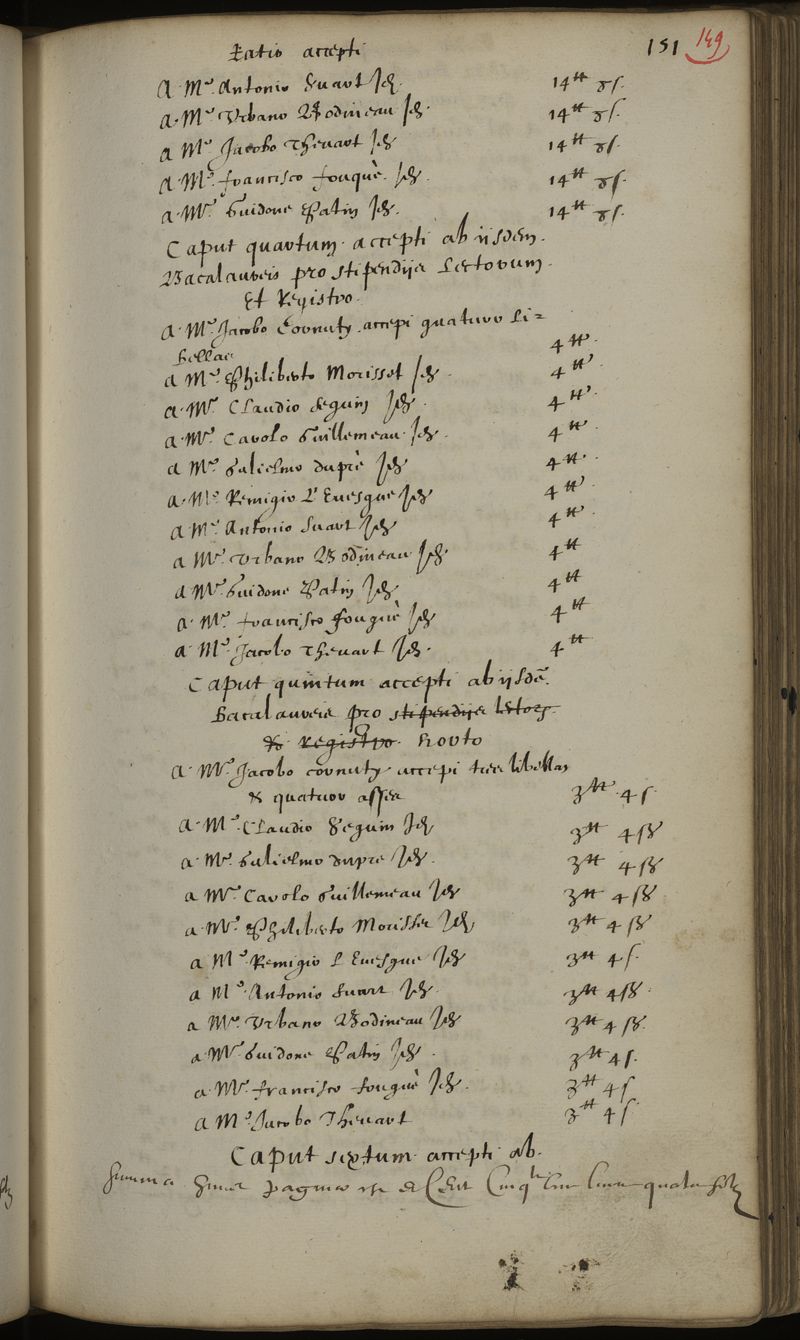 Ratio accepti 151 149
A Mro Antonio Dvart Id. 14 tt 8 s.
A Mro Vrbano Bodineau Id. 14 tt 8 s.
A Mro Jacobo Thevart Id 14 tt 8 s.
A Mro francisco fouquè Id. 14 tt 8 s.
A Mro Guidone Patin Id. 14 tt 8 s.
Caput quartum accepti ab iisdem
Bacalaureis pro stipendijs Lectorum
Et Registro.
A Mro Jacobo Cornuty accepi quatuor Li=
bellas 4 tt
A Mro Philiberto Morisset Id. 4 tt
A Mro Claudio Seguin Id. 4 tt
A Mro Carolo Guillemeau Id. 4 tt
A Mro Gulielmo dupre Id 4 tt
A Mro Remigio L'Euesque Id 4 tt
A Mro Antonio Dvart Id 4 tt
A Mro Vrbano Bodineau Id. 4 tt
A Mro Guidone Patin Id 4 tt
A Mro francisco fouquè Id 4 tt
A Mro Jacobo Thevart Id. 4 tt
Caput quintum accepti ab ijsdē
Bacalaureis pro stipendijs lectorū
& registro horto
A Mro Jacobo cornuty accepi tres libellas
& quatuor asses 3 tt 4 s
A Mro Claudio Seguin Id 3 tt 4 s
A Mro Gulielmo dupre Id. 3 tt 4 s
A Mro Carolo Guillemeau Id 3 tt 4 s
A Mro Philiberto Morisset Id 3 tt 4 s
A Mro Remigio L Euesque Id 3 tt 4 s.
A Mro Antonio Dvart Id. 3 tt 4 s.
A Mro Vrbano Bodineau Id 3 tt 4 s.
A Mro Guidone Patin Id. 3 tt 4 s.
A Mro francisco fouquè Id. 3 tt 4 s
A Mro Jacobo Thevart 3 tt 4 s
Caput sextum accepti ab.
Summa paginae